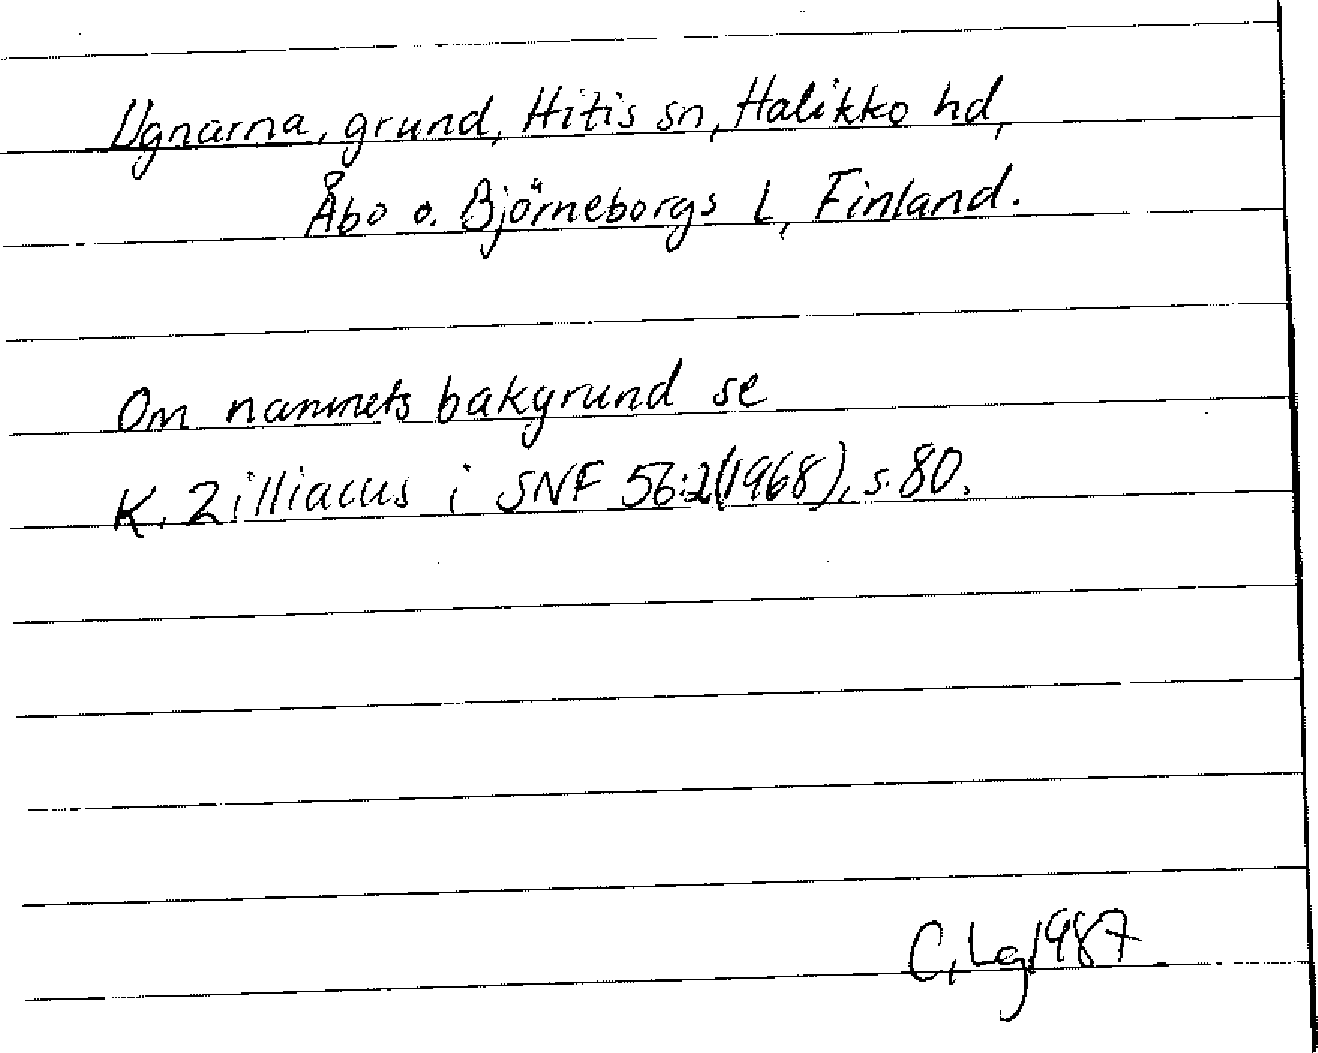 Ugnarna, grund, Hitis sn, Halikko hd,
Åbo o. Björneborgs L, Finland.
Om namnets bakgrund se
K. Zilliacus i SNF 56:2(1968), s. 80.
C, Lg 1987